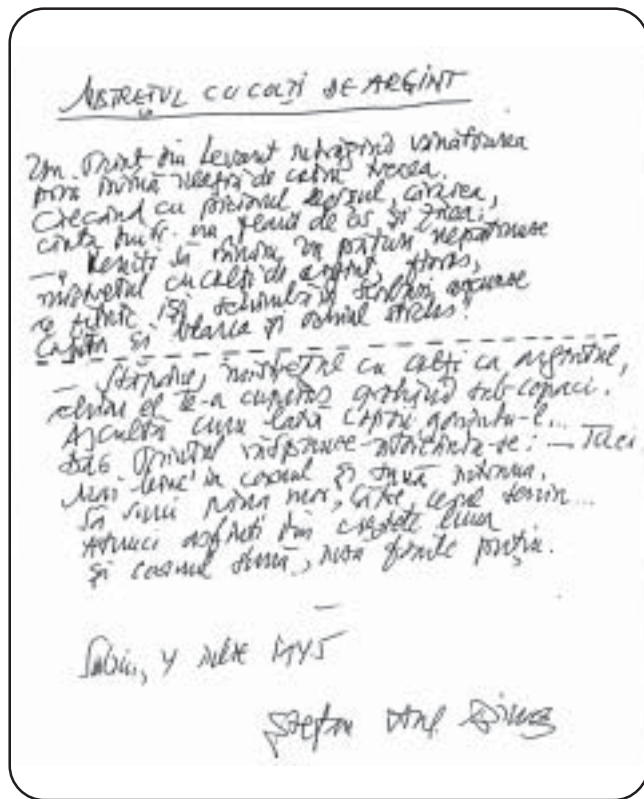 MISTREȚUL CU COLȚI DE ARGINT
Un prinț din Levant îndrăgind vânătoarea
prin inimă neagră de codru trecea.
cu cărarea,
cânta dintr-un flaut de os și zicea:
— Veniți să vânăm în păduri nepătrunse
mistrețul cu colți de argint, fioros,
ce zilnic își schimbă în scorburi ascunse
copita și blana și ochiul sticlos!
— Stăpâne, mistrețul cu colți ca argintul,
chiar el te-a cuprins grohăind sub copaci.
Ascultă cum latră copoii gonindu-l...
Dar prințul răspunse-ntorcându-se: — Taci.
Mai bine ia cornul și sună întruna.
Să suni până mor, către cerul senin...
Atunci asfinți din creștete luna
și cornul sună, însă foarte puțin.
Sibiu, 4 iulie 1945
Ștefan Aug. Doinaș